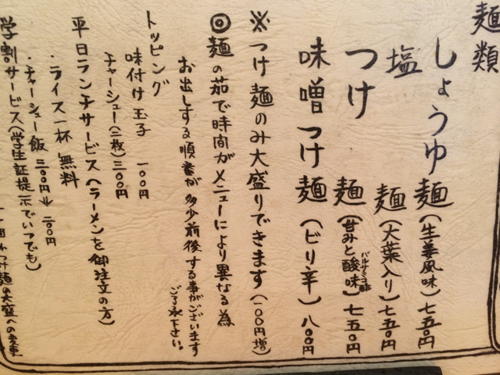 麺類
しょうゆ麺(生姜風味)七五〇円
塩麺(大葉入り)七五〇円
つけ麺(甘みと酸味)七五〇円
味噌つけ麺(ピリ辛)八〇〇円
※つけ麺のみ大盛りできます(一〇〇円増)
◎麺の茹で時間がメニューにより異なる為
お出しする順番が多少前後する事がございます
ご了承下さい。
トッピング
味付け玉子 一〇〇円
チャーシュー(二枚)二〇〇円
平日ランチサービス(ラーメンを御注文の方)
・ライス一杯 無料
・チャーシュー飯 三〇〇円→二〇〇円
学割サービス(学生証提示でいつでも)